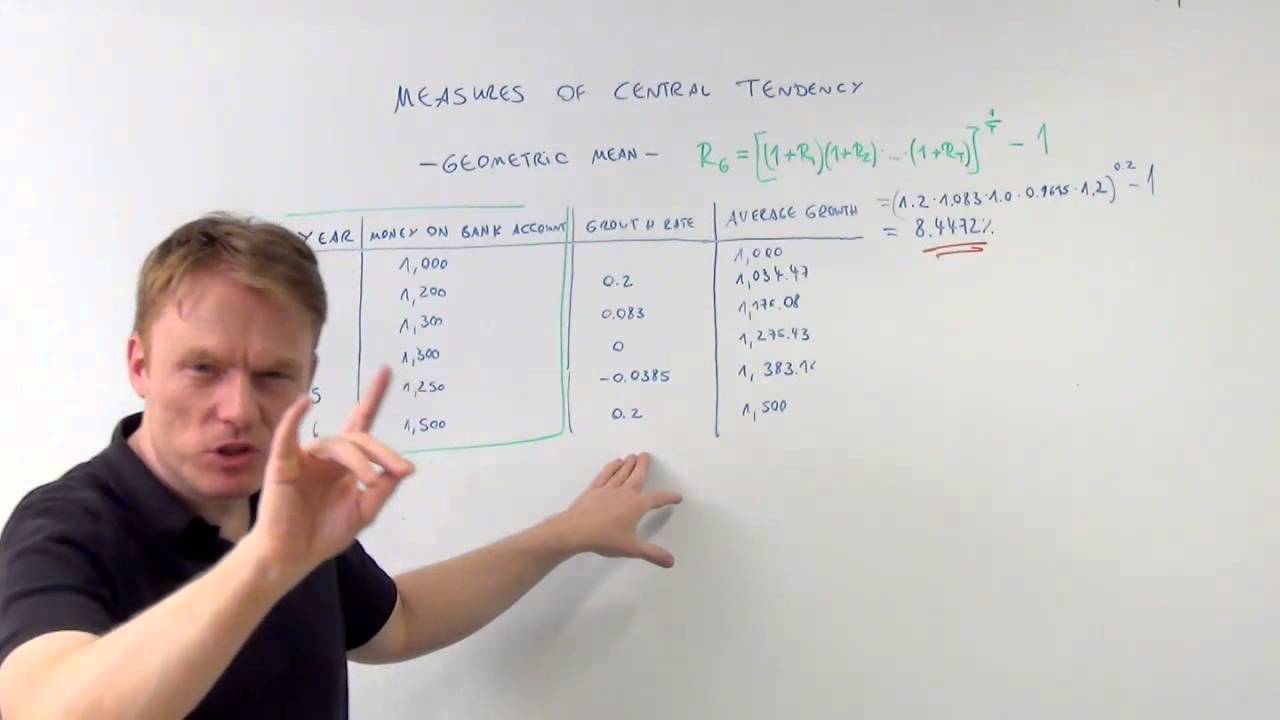 MEASURES OF CENTRAL TENDENCY
-GEOMETRIC MEAN- R_G = [(1+R_1)(1+R_2)·...·(1+R_T)]^{1/T} - 1
= (1.2 · 1.083 · 1.0 · 0.9615 · 1.2)^{0.2} - 1
= 8.4472%
YEAR MONEY ON BANK ACCOUNT GROUTH RATE AVERAGE GROWTH
1,000 1,000
1,200 0.2 1,034.47
1,300 0.083 1,176.08
1,300 0 1,275.43
5 1,250 -0.0385 1,383.16
6 1,500 0.2 1,500